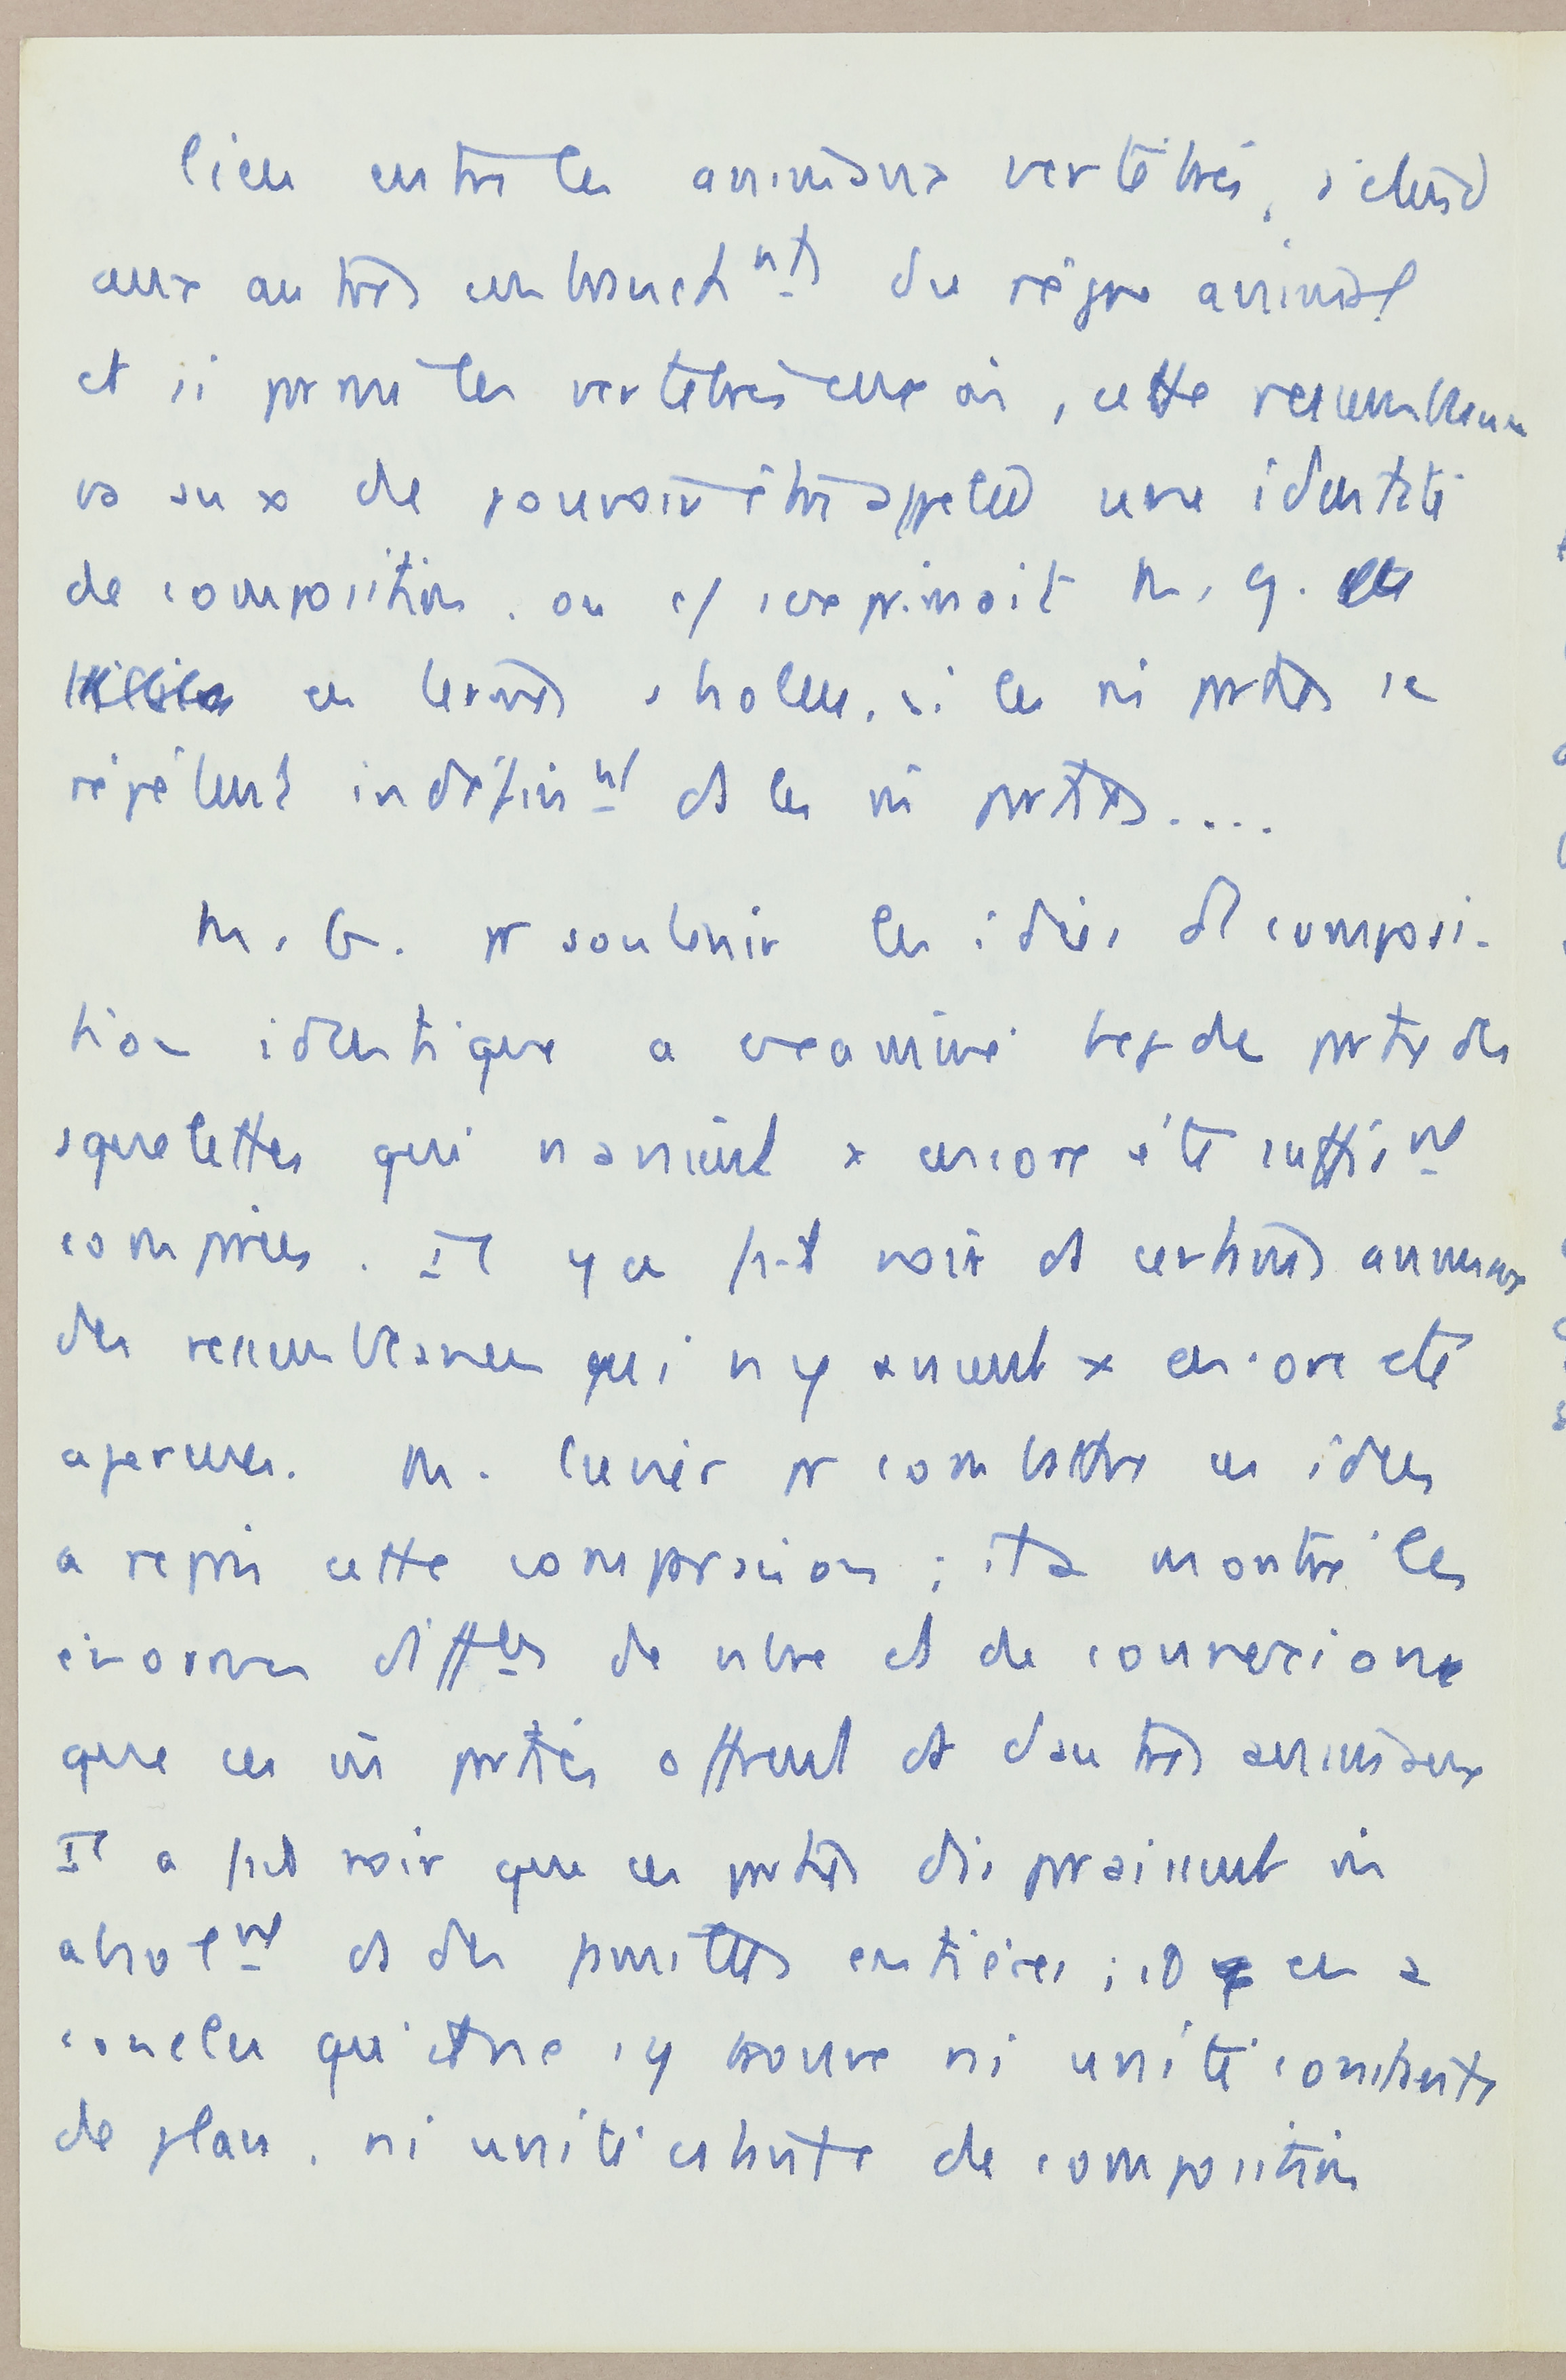 lieu entre les animaux vertébrés, s'étend
aux autres embrancht nts du règne animal
et si parmi les vertébrés eux mm, cette ressemblance
va ju x de pouvoir être appelée une identité
de composition. ou c/ s'exprimait M. G.
en termes absolus, si les mm parties se
répétent indéfin nt ds les mm parties....
M. G. pr soutenir les idées de composi-
tion identique a examiné bcp de parties des
squelettes qui navaient x encore été suffis nt
comprises. Il y a fait voir ds certains animaux
des ressemblances qui n y avaient x encore été
aperçues. M. Cuvier pr combattre ces idées
a repris cette comparaison ; il a montré les
énormes diff ces de nbre et de connexions
que ces mm parties offrent ds dautres animaux
Il a fait voir que ces parties disparaissent mm
absol nt ds des familles entières ; il en a
conclu qu'il ne s y trouve ni unité constante
de plan. ni unité cstante de composition